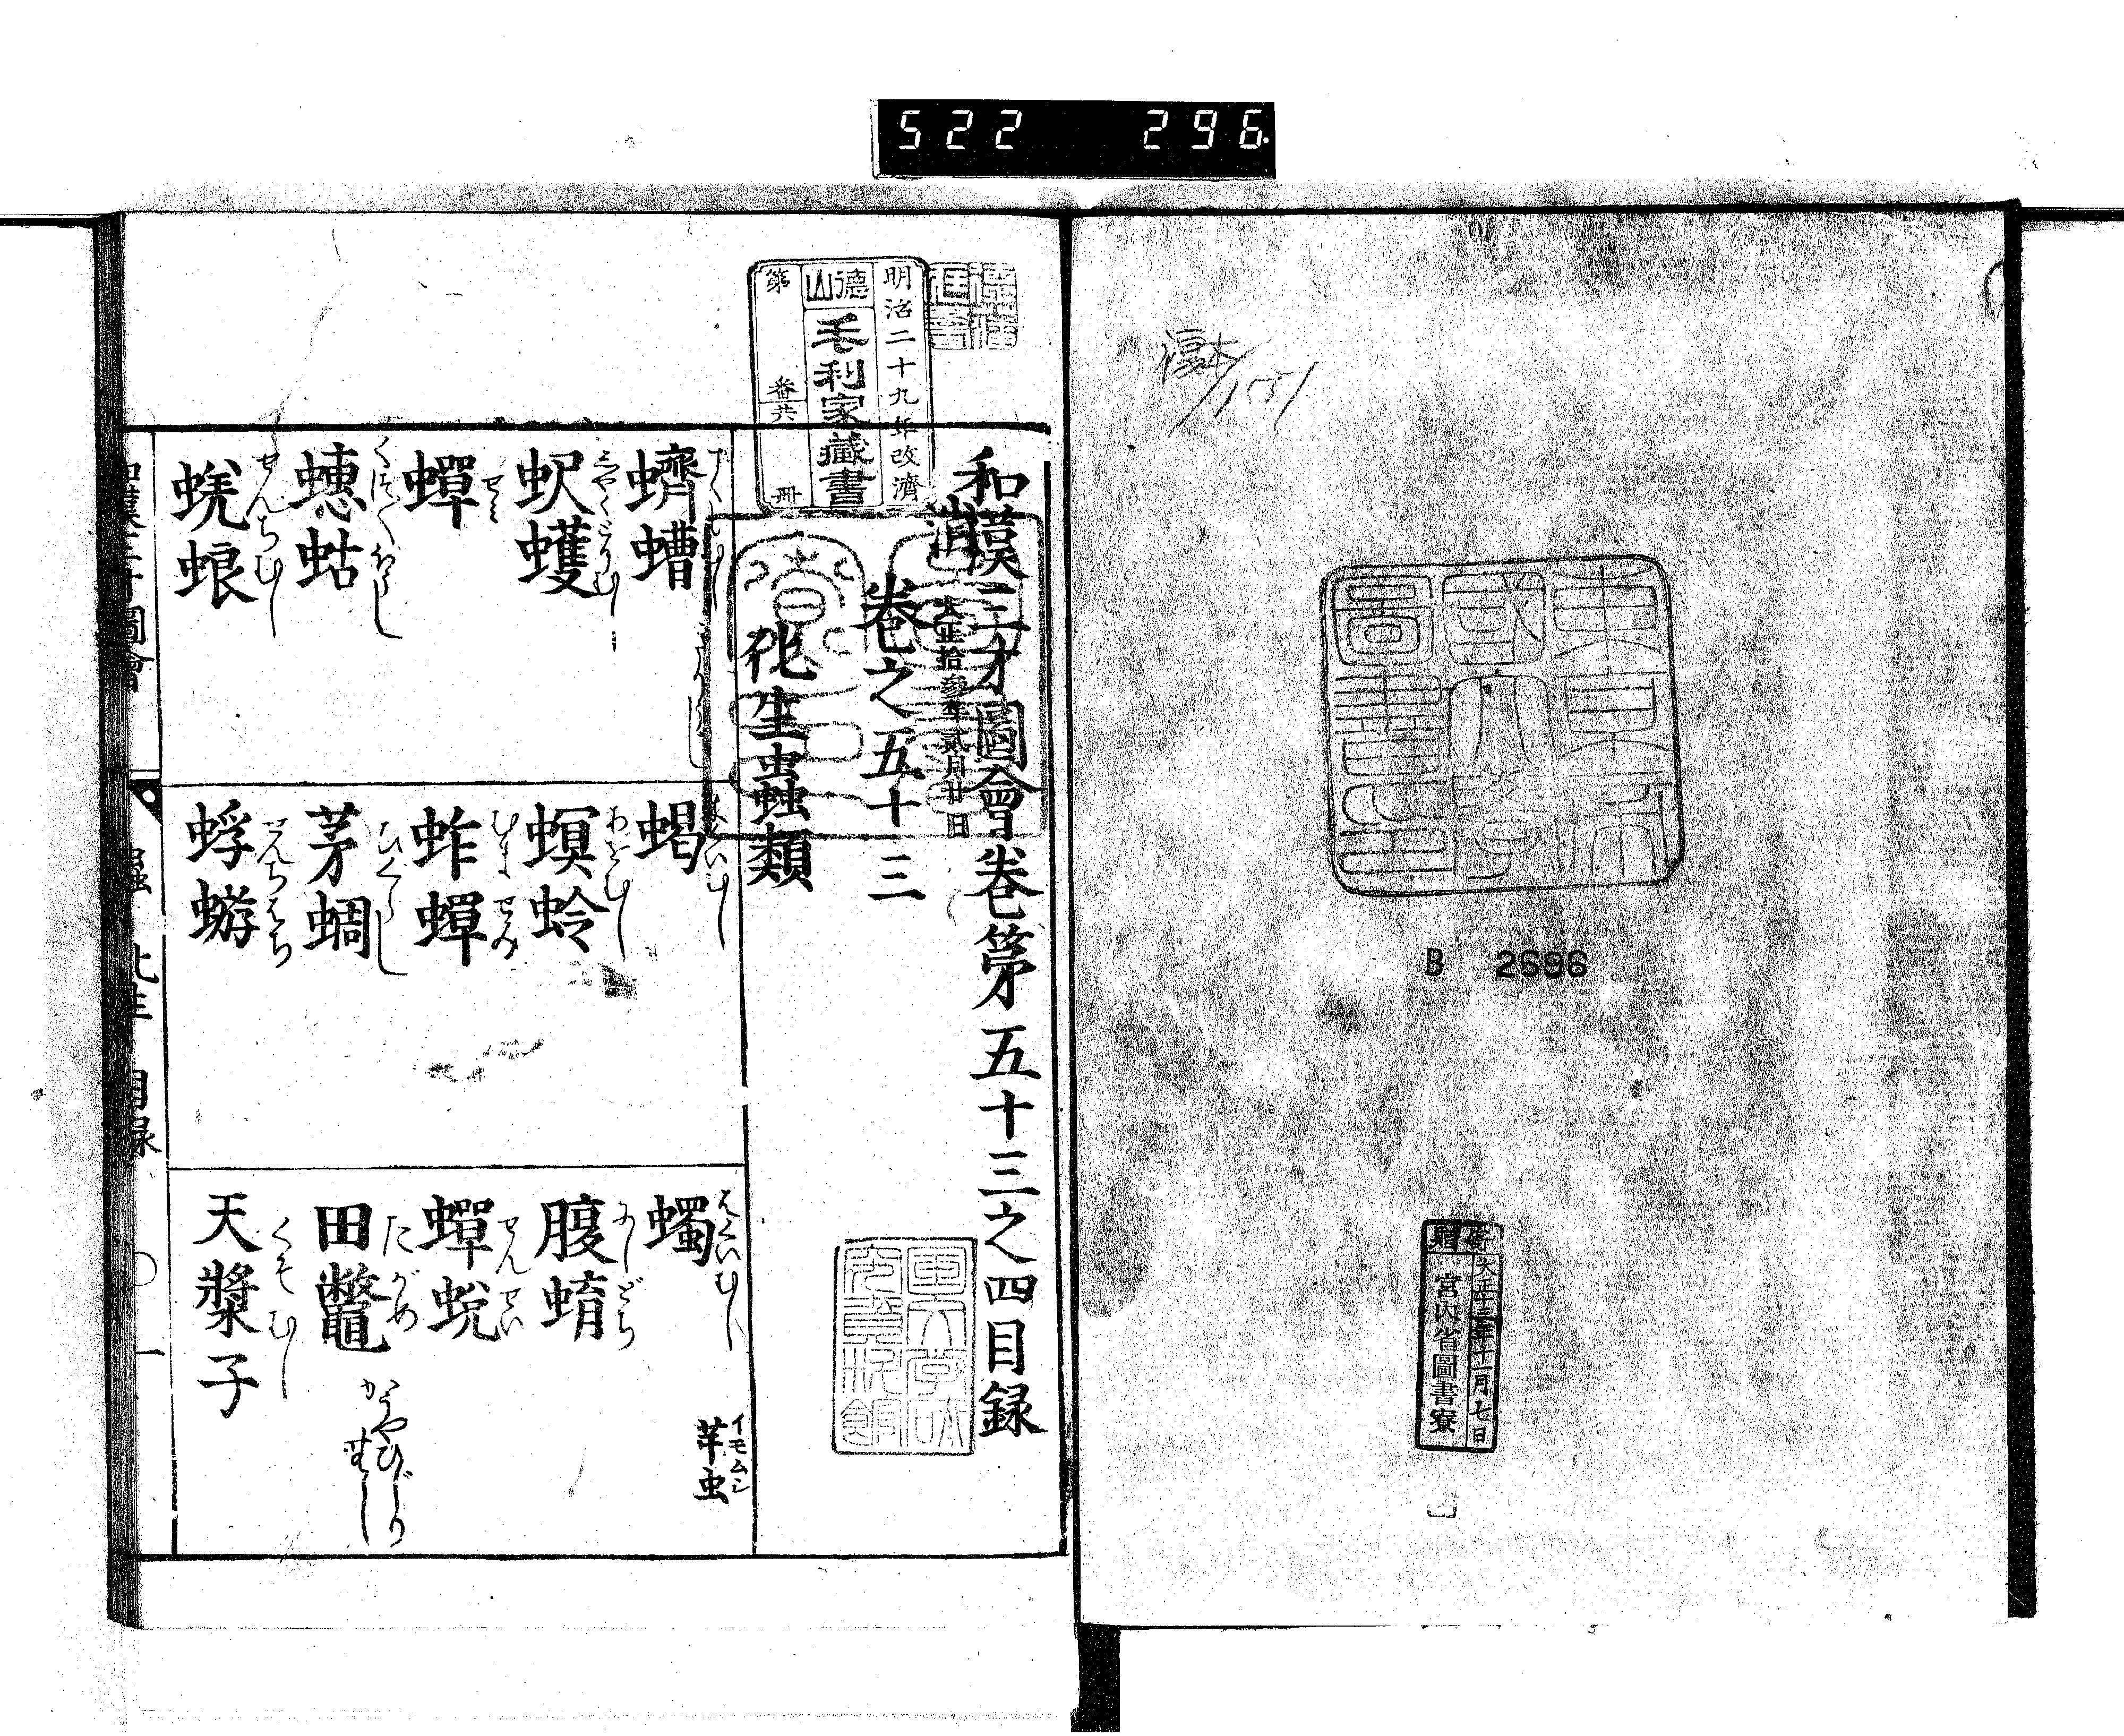 522 296
複本
東京帝國大學圖書印
B 2696
寄贈
大正十三年十一月七日
宮内省圖書寮
和漢三才圖會巻第五十三之四目録
消
大正拾參年貳月廿日
明治二十九年改濟
德山
毛利家藏書
第 番共 冊
巻之五十三
化生蟲類
蠐螬
蝎 きくいむし
蠋 はくいむし
芋虫 イモムシ
蚇蠖 しやくとりむし
螟蛉 あをむし
腹蜟 にしどち
蟬 せミ
蚱蟬 むまぜみ
蟬蛻 せんぜい
蟪蛄 くつくつぼうし
茅蜩 ひぐらし
田鼈 たがめ
かうやひじり
蜣蜋 せんちむし
蜉蝣 せんちばち
天漿子 くそむし
和漢三才圖會
蟲 化生 目録 〇 一